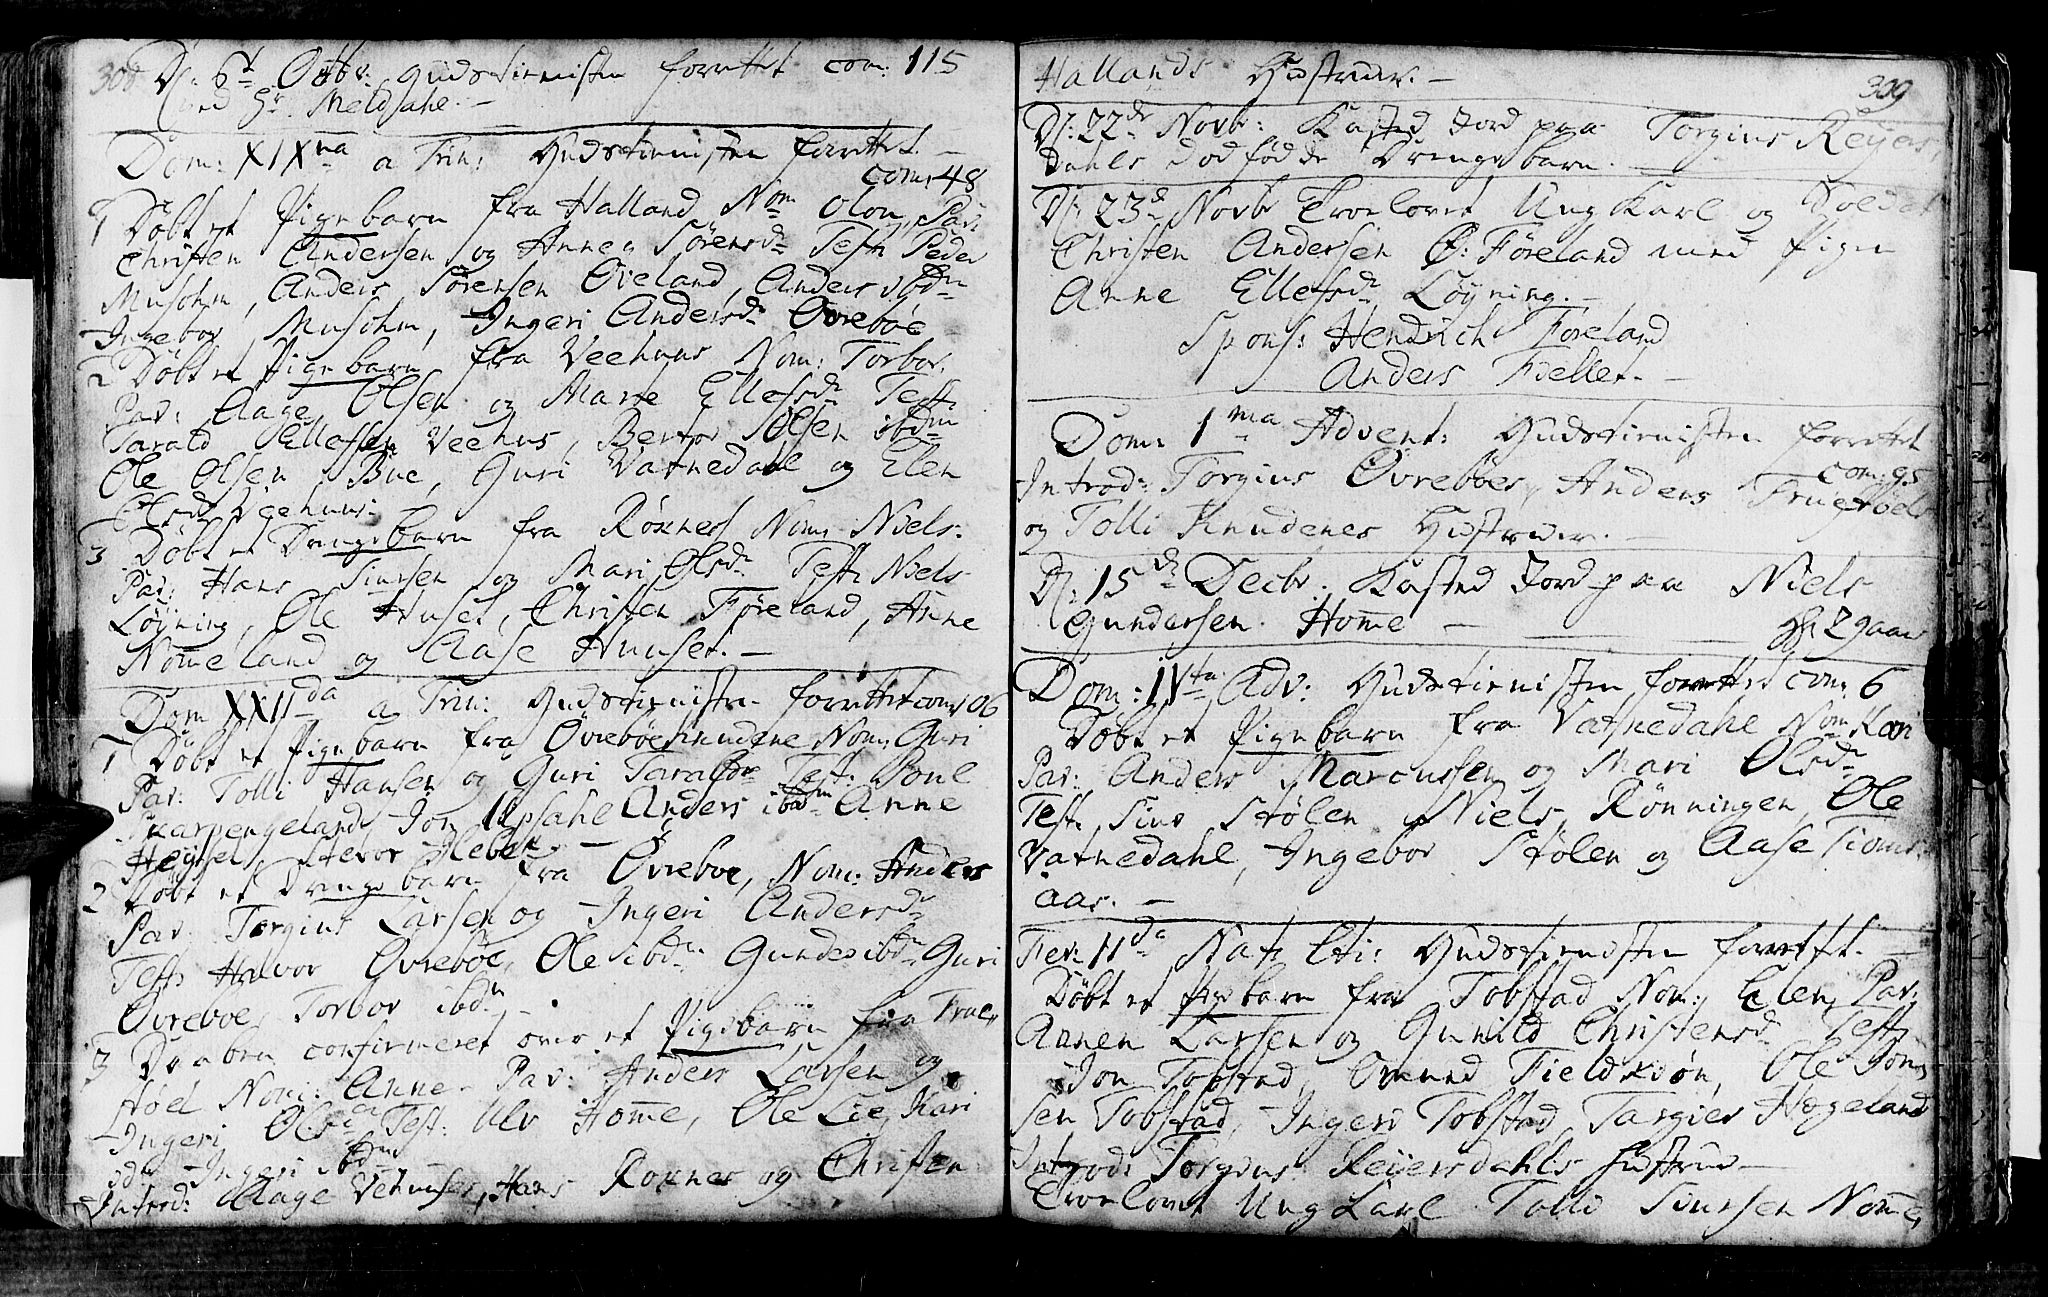 308
D: 6t Octbr: Gudstienisten forrettet com: 115
ved Hr. Meldahl. —
Dom: XIXna a Trin: Gudstienisten forrettet. —
com: 48
1 Døbt et Pigebarn fra Halland Nom Olou, Par:
Christen Andersen og Anne Sørensdr Test: Peder
Musohm, Anders Sørensen Øveland, Anders ibdm
Ingebor Musohm, Ingeri Andersdr Øvrebøe
2 Døbt et Pigebarn fra Veehuus Nom: Torbor.
Par: Aage Olsen og Marie Ellefsdr Test:
Tarald Ellefsen Veehus, Bertor Olsen ibdm
Ole Olsen Bue, Guri Vatnedahl og Elen
Olsdr Veehuus.
3 Døbt et Drengebarn fra Røxnes Nom: Niels.
Par: Hans Siursen og Mari Olsdr Test: Niels
Løyning, Ole Huset, Christen Føreland, Anne
Nomeland og Aase Huuset. —
Dom XXIIda a Trin: Gudstienisten forrettet com: 106
1 Døbt et Pigebarn fra Øvrebøeknudene Nom: Guri
Par: Tolli Hansen og Guri Taraldsdr Test: Poul
Skarpengeland, Jon Upsahl Anders ibdm Anne
Heysel, Hevor
2 Døbt et Drengebarn fra Øvreboe, Nom: Anders
Par: Torgius Larsen og Ingeri Andersdr
Test: Halvor Øvrebøe, Ole ibdm Gunder ibdm Guri
Øvreboe, Torbor ibdm —
3 Daaben confirmeret over et Pigebarn fra True
støel Nom: Anne. Par: Anders Larsen og
Ingeri Olsdr Test: Ulv Home, Ole Lie, Kari
ibdm Ingeri ibdm
Introd: Aage Vehuuses, Hans Roxnes og Christen
309
Hallands Hustruer. —
D: 22de Novbr: Kasted Jord paa Torgius Reyers-
dahls dødfødde Drengebarn. —
D: 23de Novbr Troelovet Ung Karl og Soldat
Christen Andersen Ø: Føreland med Pigen
Anne Ellefsdr Løyning. —
Spons: Hendrich Foreland
Anders Fiellet. —
Dom: 1ma Advent: Gudstienisten forrettet
com: 95
Introd: Torgius Øvrebøes, Anders Truestøels
og Tolli Knudenes Hustruer. —
D: 15de Decbr: Kasted Jord paa Niels
Gundersen Home — 2 gaar
Dom: IVta Adv: Gudstienisten forrettet com: 6
Døbt et Pigebarn fra Vatnedahl Nom Kari
Par: Anders Marcussen og Mari Olsdr
Test: Siur Stølen Niels Rønningen, Ole
Vatnedahl, Ingebor Stølen og Aase Tioms-
aas. —
Fer: IIda Nat: Xti: Gudstienisten forrett. —
Døbt et Pigebarn fra Tobstad Nom: Elen, Par:
Aanen Larsen og Gunild Christensdr Test:
Jon Tobstad, Omund Fieldskøn, Ole Jon-
sen Tobstad, Ingeri Tobstad, Targier Hægeland
Introd: Torgius Reyersdahls Hustrue —
Troelovet Ung Karl Tolli Siursen Nome,